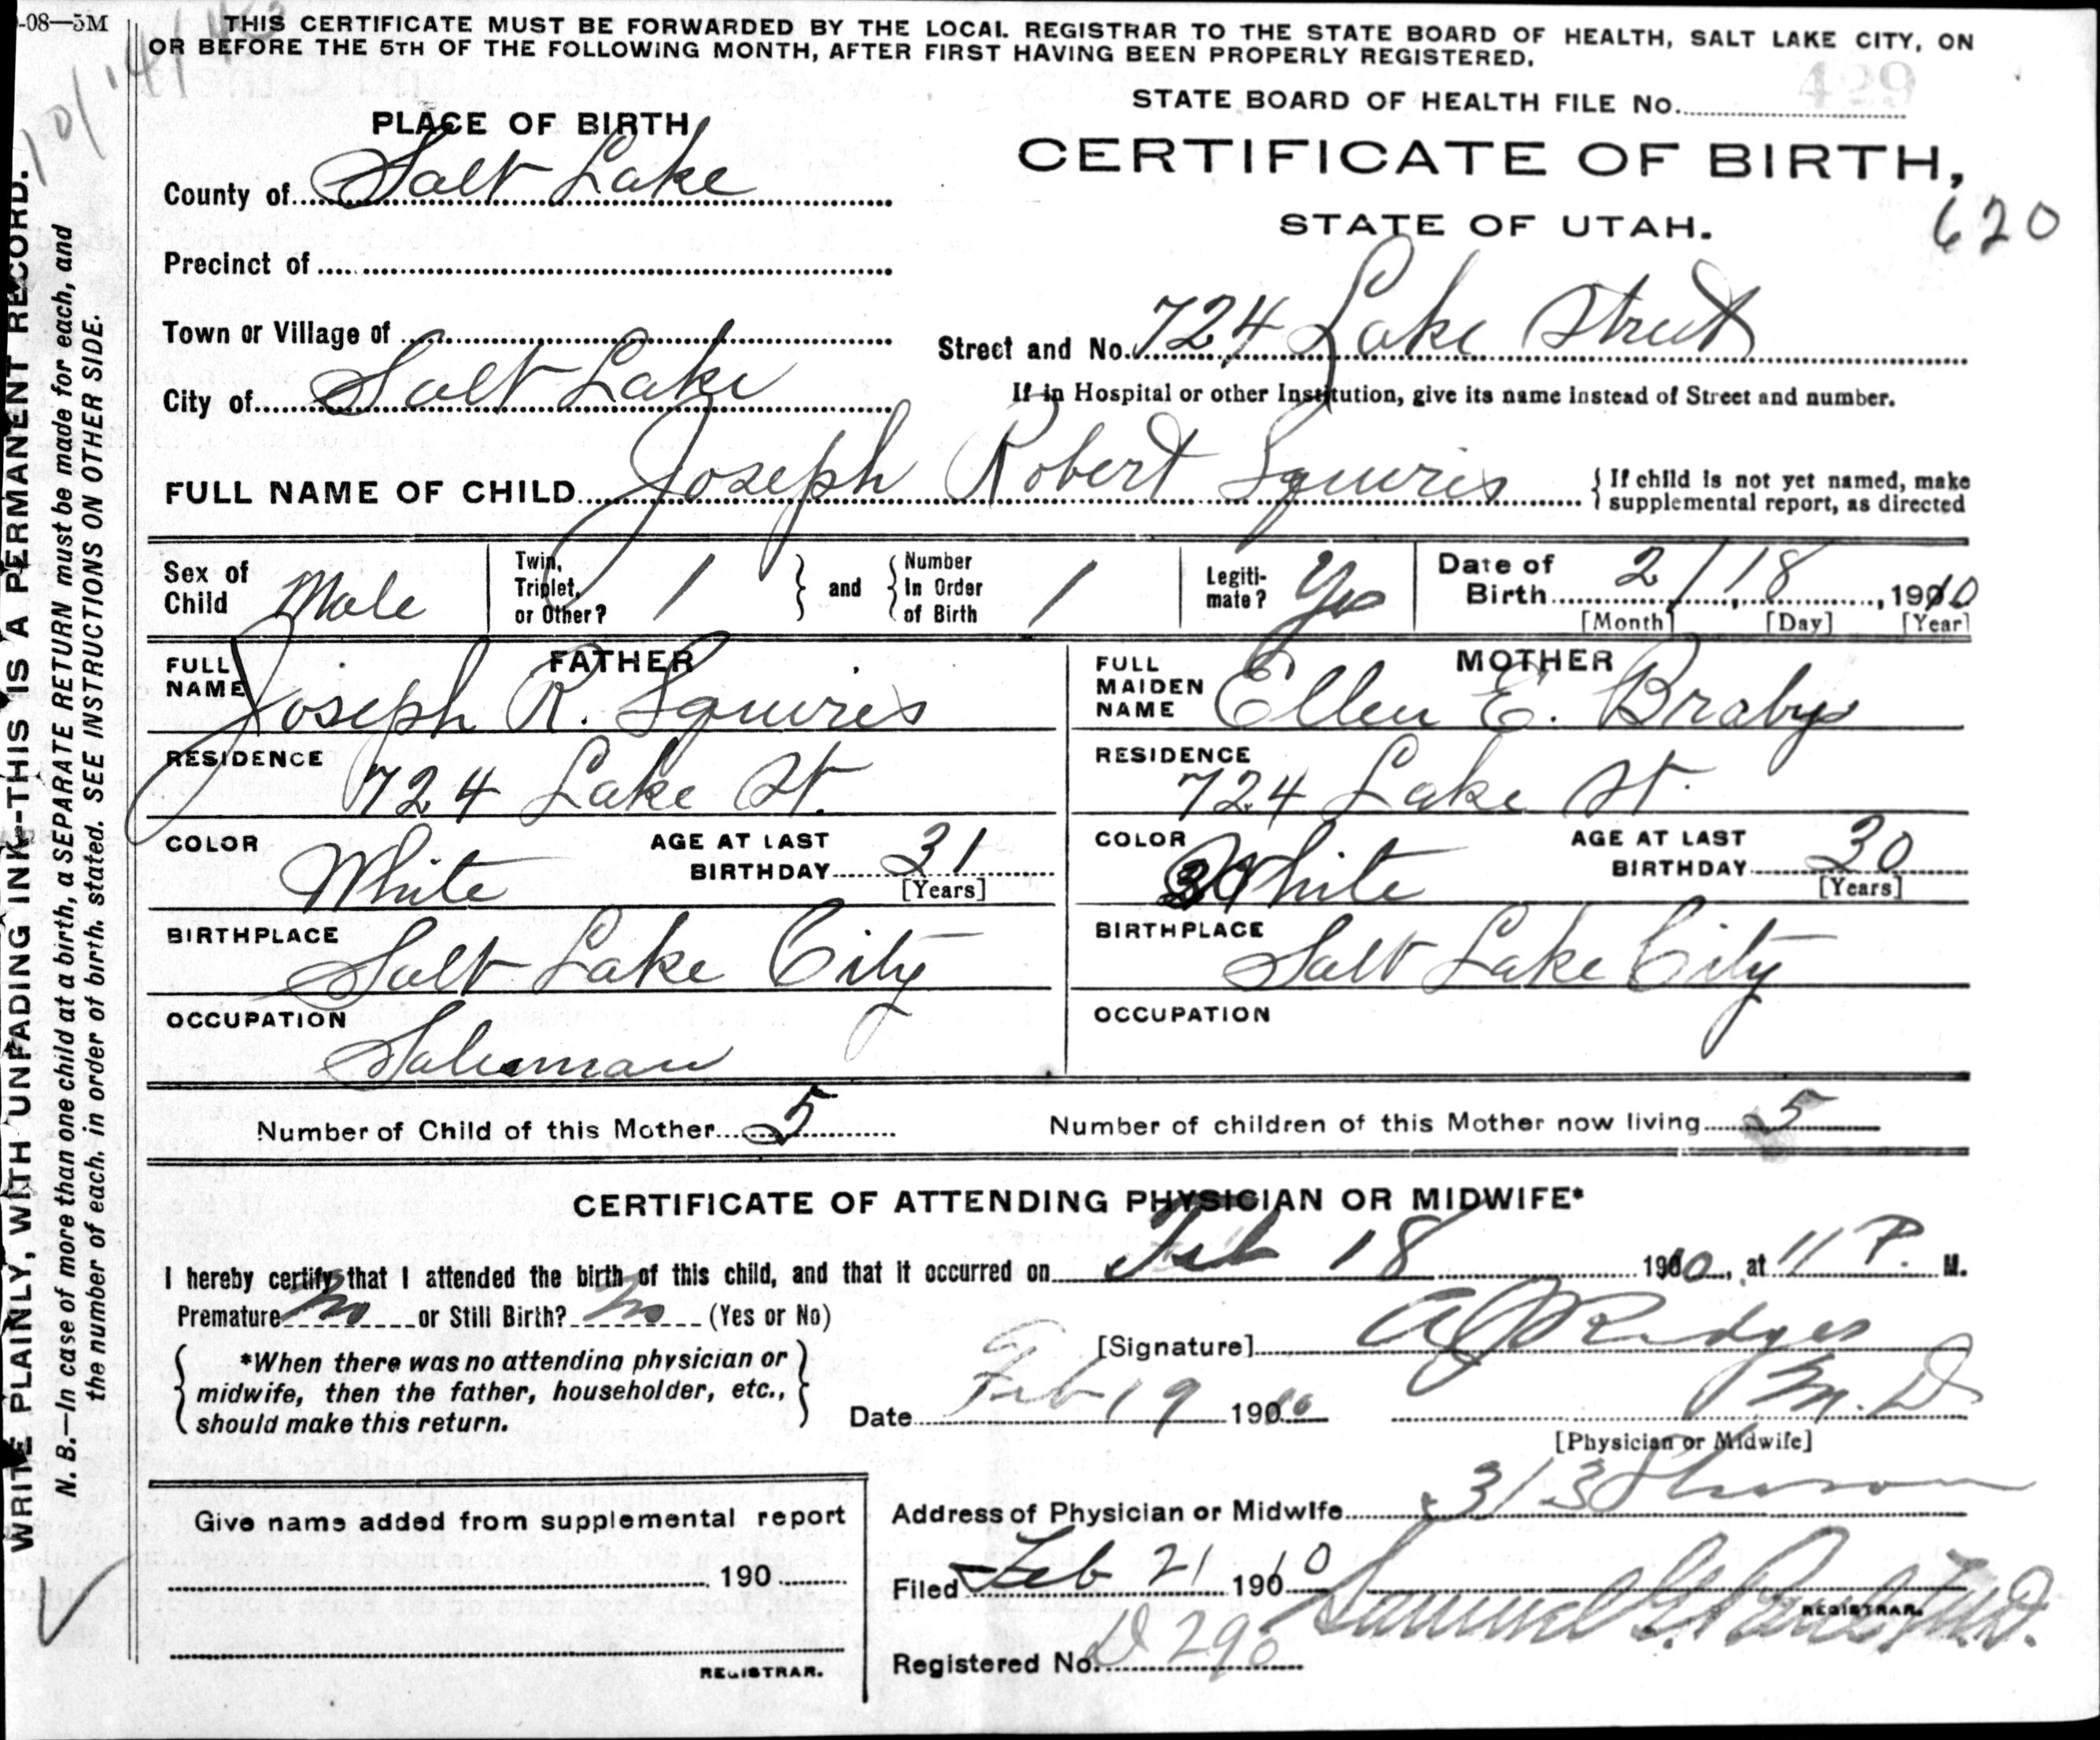 -08—5M
THIS CERTIFICATE MUST BE FORWARDED BY THE LOCAL REGISTRAR TO THE STATE BOARD OF HEALTH, SALT LAKE CITY, ON
OR BEFORE THE 5TH OF THE FOLLOWING MONTH, AFTER FIRST HAVING BEEN PROPERLY REGISTERED.
STATE BOARD OF HEALTH FILE No. 429
PLACE OF BIRTH
CERTIFICATE OF BIRTH,
STATE OF UTAH.
620
County of Salt Lake
Precinct of
Town or Village of
Street and No. 724 Lake Street
City of Salt Lake
If in Hospital or other Institution, give its name instead of Street and number.
FULL NAME OF CHILD Joseph Robert Squires
{ If child is not yet named, make
supplemental report, as directed
Sex of Child Male
Twin, Triplet, or Other? 1 } and { Number in Order of Birth 1
Legitimate? Yes
Date of Birth 2 / 18, 1910
[Month] [Day] [Year]
FATHER
FULL NAME Joseph R. Squires
RESIDENCE 724 Lake St.
COLOR White
AGE AT LAST BIRTHDAY 31
[Years]
BIRTHPLACE Salt Lake City
OCCUPATION Salesman
MOTHER
FULL MAIDEN NAME Ellen E. Braby
RESIDENCE 724 Lake St.
COLOR White
AGE AT LAST BIRTHDAY 30
[Years]
BIRTHPLACE Salt Lake City
OCCUPATION
Number of Child of this Mother 5
Number of children of this Mother now living 5
CERTIFICATE OF ATTENDING PHYSICIAN OR MIDWIFE*
I hereby certify that I attended the birth of this child, and that it occurred on Feb 18 1910, at 11 P. M.
Premature No or Still Birth? No (Yes or No)
*When there was no attending physician or
midwife, then the father, householder, etc.,
should make this return.
[Signature] Ridges
M.D
Date Feb 19 1910
[Physician or Midwife]
Address of Physician or Midwife 313
Give name added from supplemental report
190
REGISTRAR.
Filed Feb 21 1910
Samuel G. Paul M.D.
REGISTRAR.
Registered No. D 290
WRITE PLAINLY, WITH UNFADING INK—THIS IS A PERMANENT RECORD.
N. B.—In case of more than one child at a birth, a SEPARATE RETURN must be made for each, and
the number of each, in order of birth, stated. SEE INSTRUCTIONS ON OTHER SIDE.